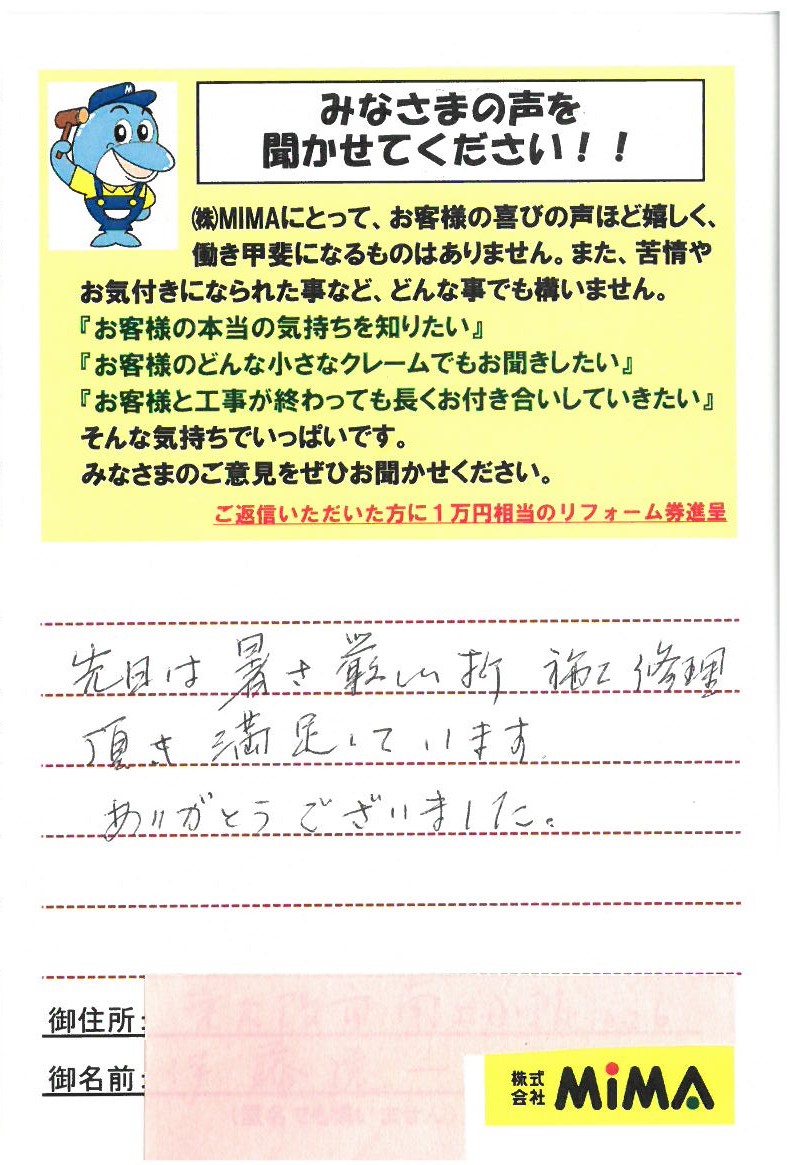 みなさまの声を
聞かせてください！！
㈱MIMAにとって、お客様の喜びの声ほど嬉しく、
働き甲斐になるものはありません。また、苦情や
お気付きになられた事など、どんな事でも構いません。
『お客様の本当の気持ちを知りたい』
『お客様のどんな小さなクレームでもお聞きしたい』
『お客様と工事が終わっても長くお付き合いしていきたい』
そんな気持ちでいっぱいです。
みなさまのご意見をぜひお聞かせください。
ご返信いただいた方に１万円相当のリフォーム券進呈
先日は暑さ厳しい折 施工修理
頂き満足しています
ありがとうございました。
御住所：
御名前：
株式会社 MiMA